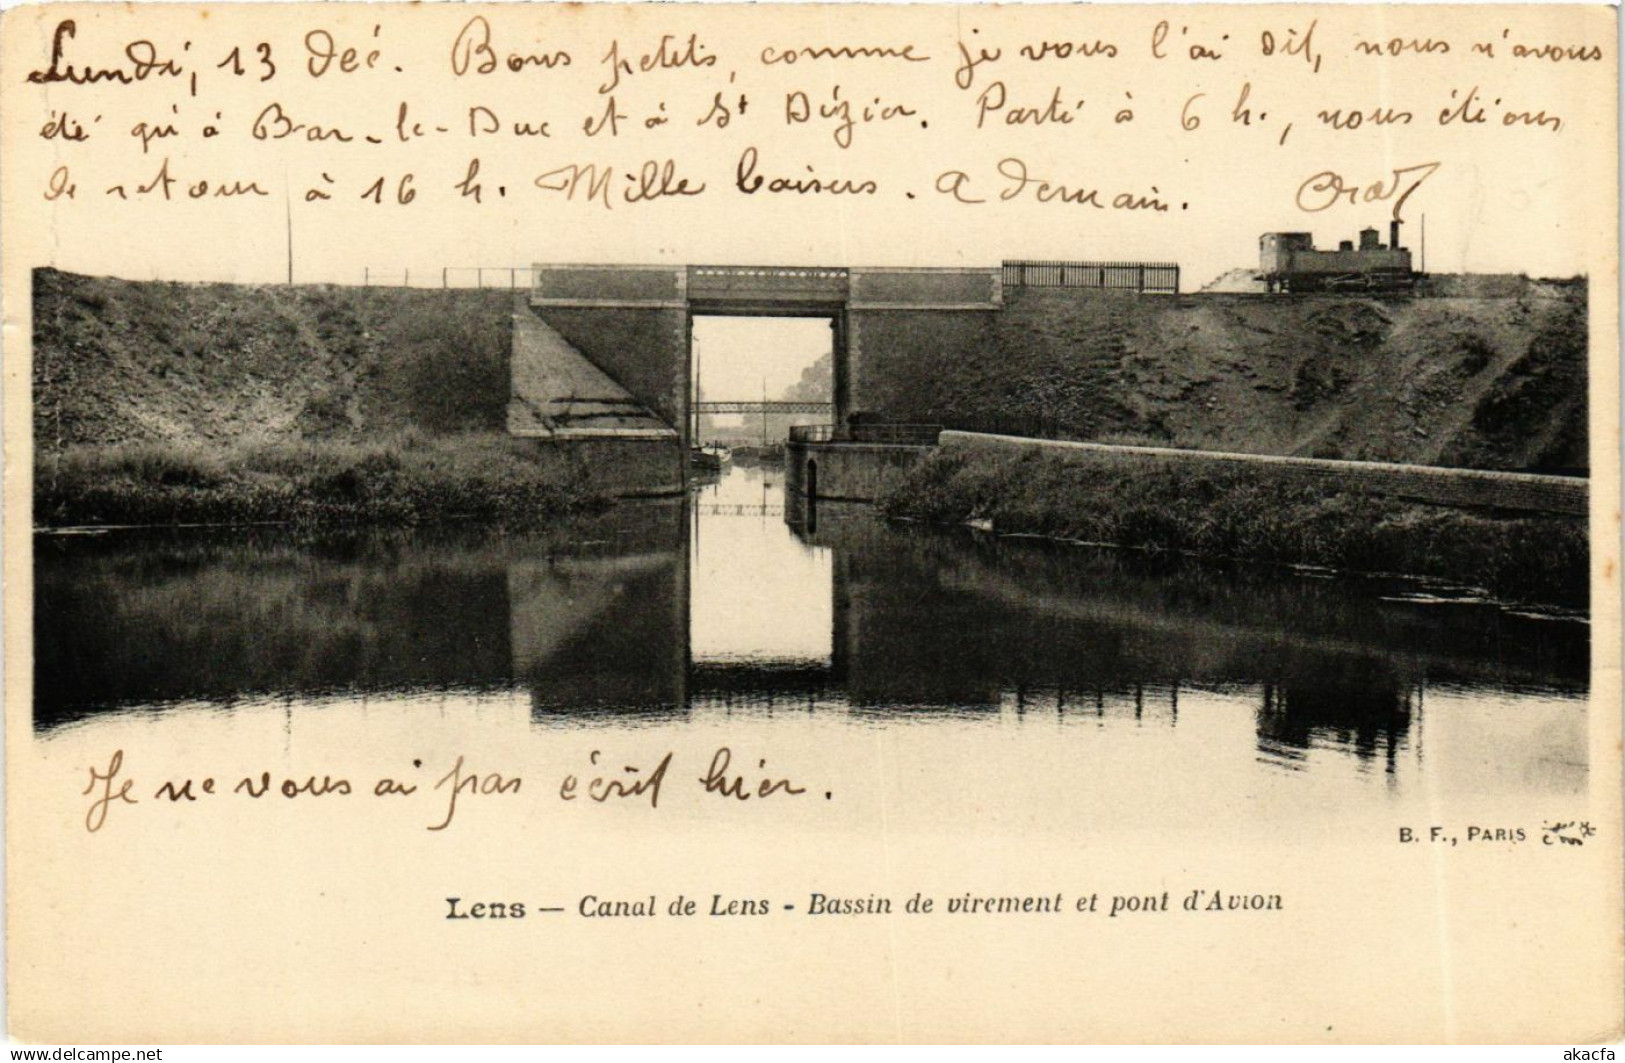 Lundi, 13 Déc. Bons petits, comme je vous l'ai dit, nous n'avons
été qu'à Bar-le-Duc et à St Dizier. Parti à 6 h., nous étions
de retour à 16 h. Mille baisers. A demain.
Je ne vous ai pas écrit hier.
B. F., PARIS
Lens — Canal de Lens - Bassin de virement et pont d'Avion
www.delcampe.net
akacfa